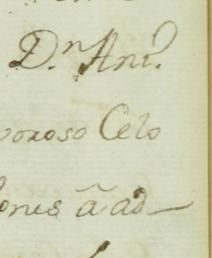 D.n Ant.o
voroso Celo
ones ã ad